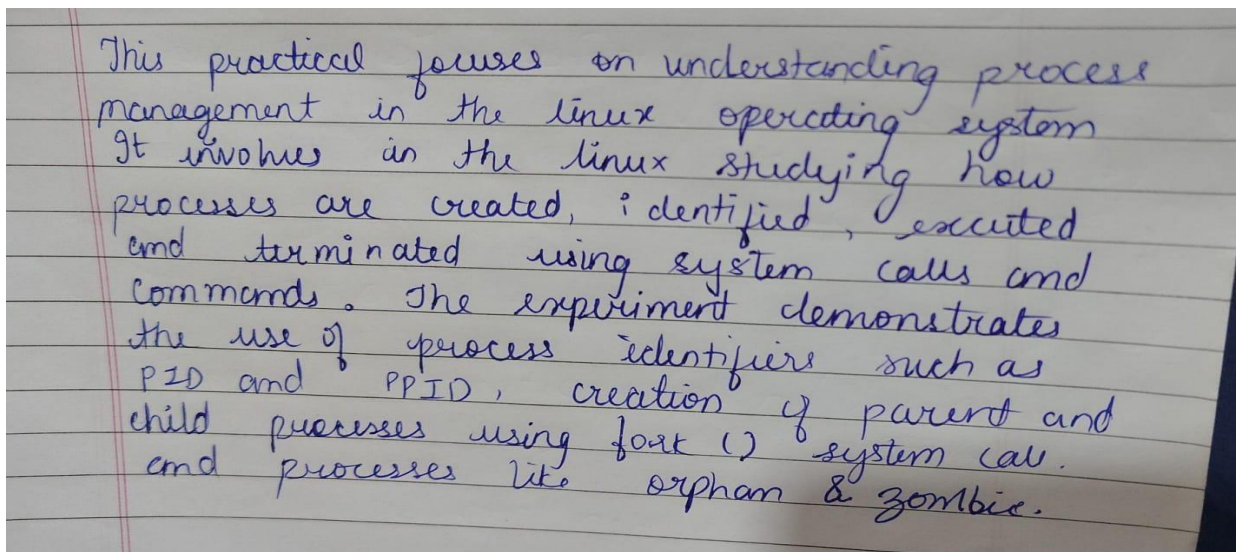 This practical focuses on understanding process
management in the linux operating system
It involves in the linux studying how
processes are created, identified, executed
and terminated using system calls and
commands. The experiment demonstrates
the use of process identifiers such as
PID and PPID, creation of parent and
child processes using fork () system call.
and processes like orphan & zombie.